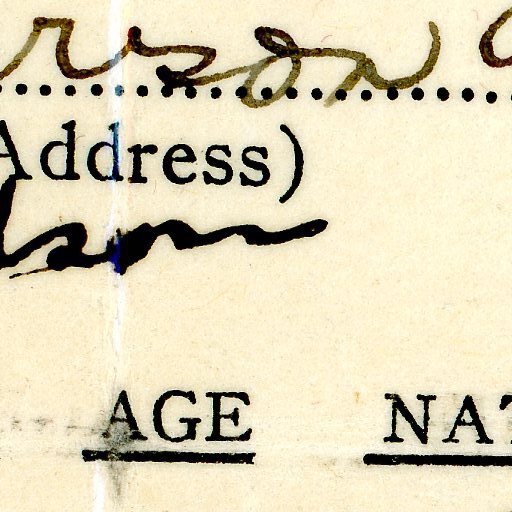 erson
Address)
lson
AGE NAT